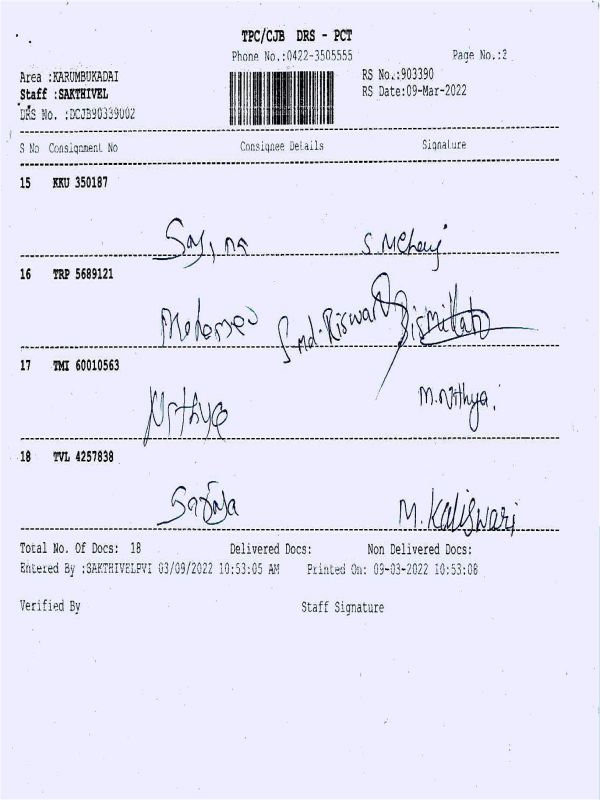 TPC/CJB DRS - PCT
Phone No.:0422-3505555 Page No.:2
Area :KARUMBUKADAI RS No.:903390
Staff :SAKTHIVEL RS Date:09-Mar-2022
DRS No. :DCJB90339002
S No Consignment No Consignee Details Signature
15 KKU 350187
16 TRP 5689121
Mohamed S md. Riswan Bismillah
17 TMI 60010563
Nithya M.Nithya.
18 TVL 4257838
M. Kaliswari
Total No. Of Docs: 18 Delivered Docs: Non Delivered Docs:
Entered By :SAKTHIVELPVI 03/09/2022 10:53:05 AM Printed On: 09-03-2022 10:53:08
Verified By Staff Signature